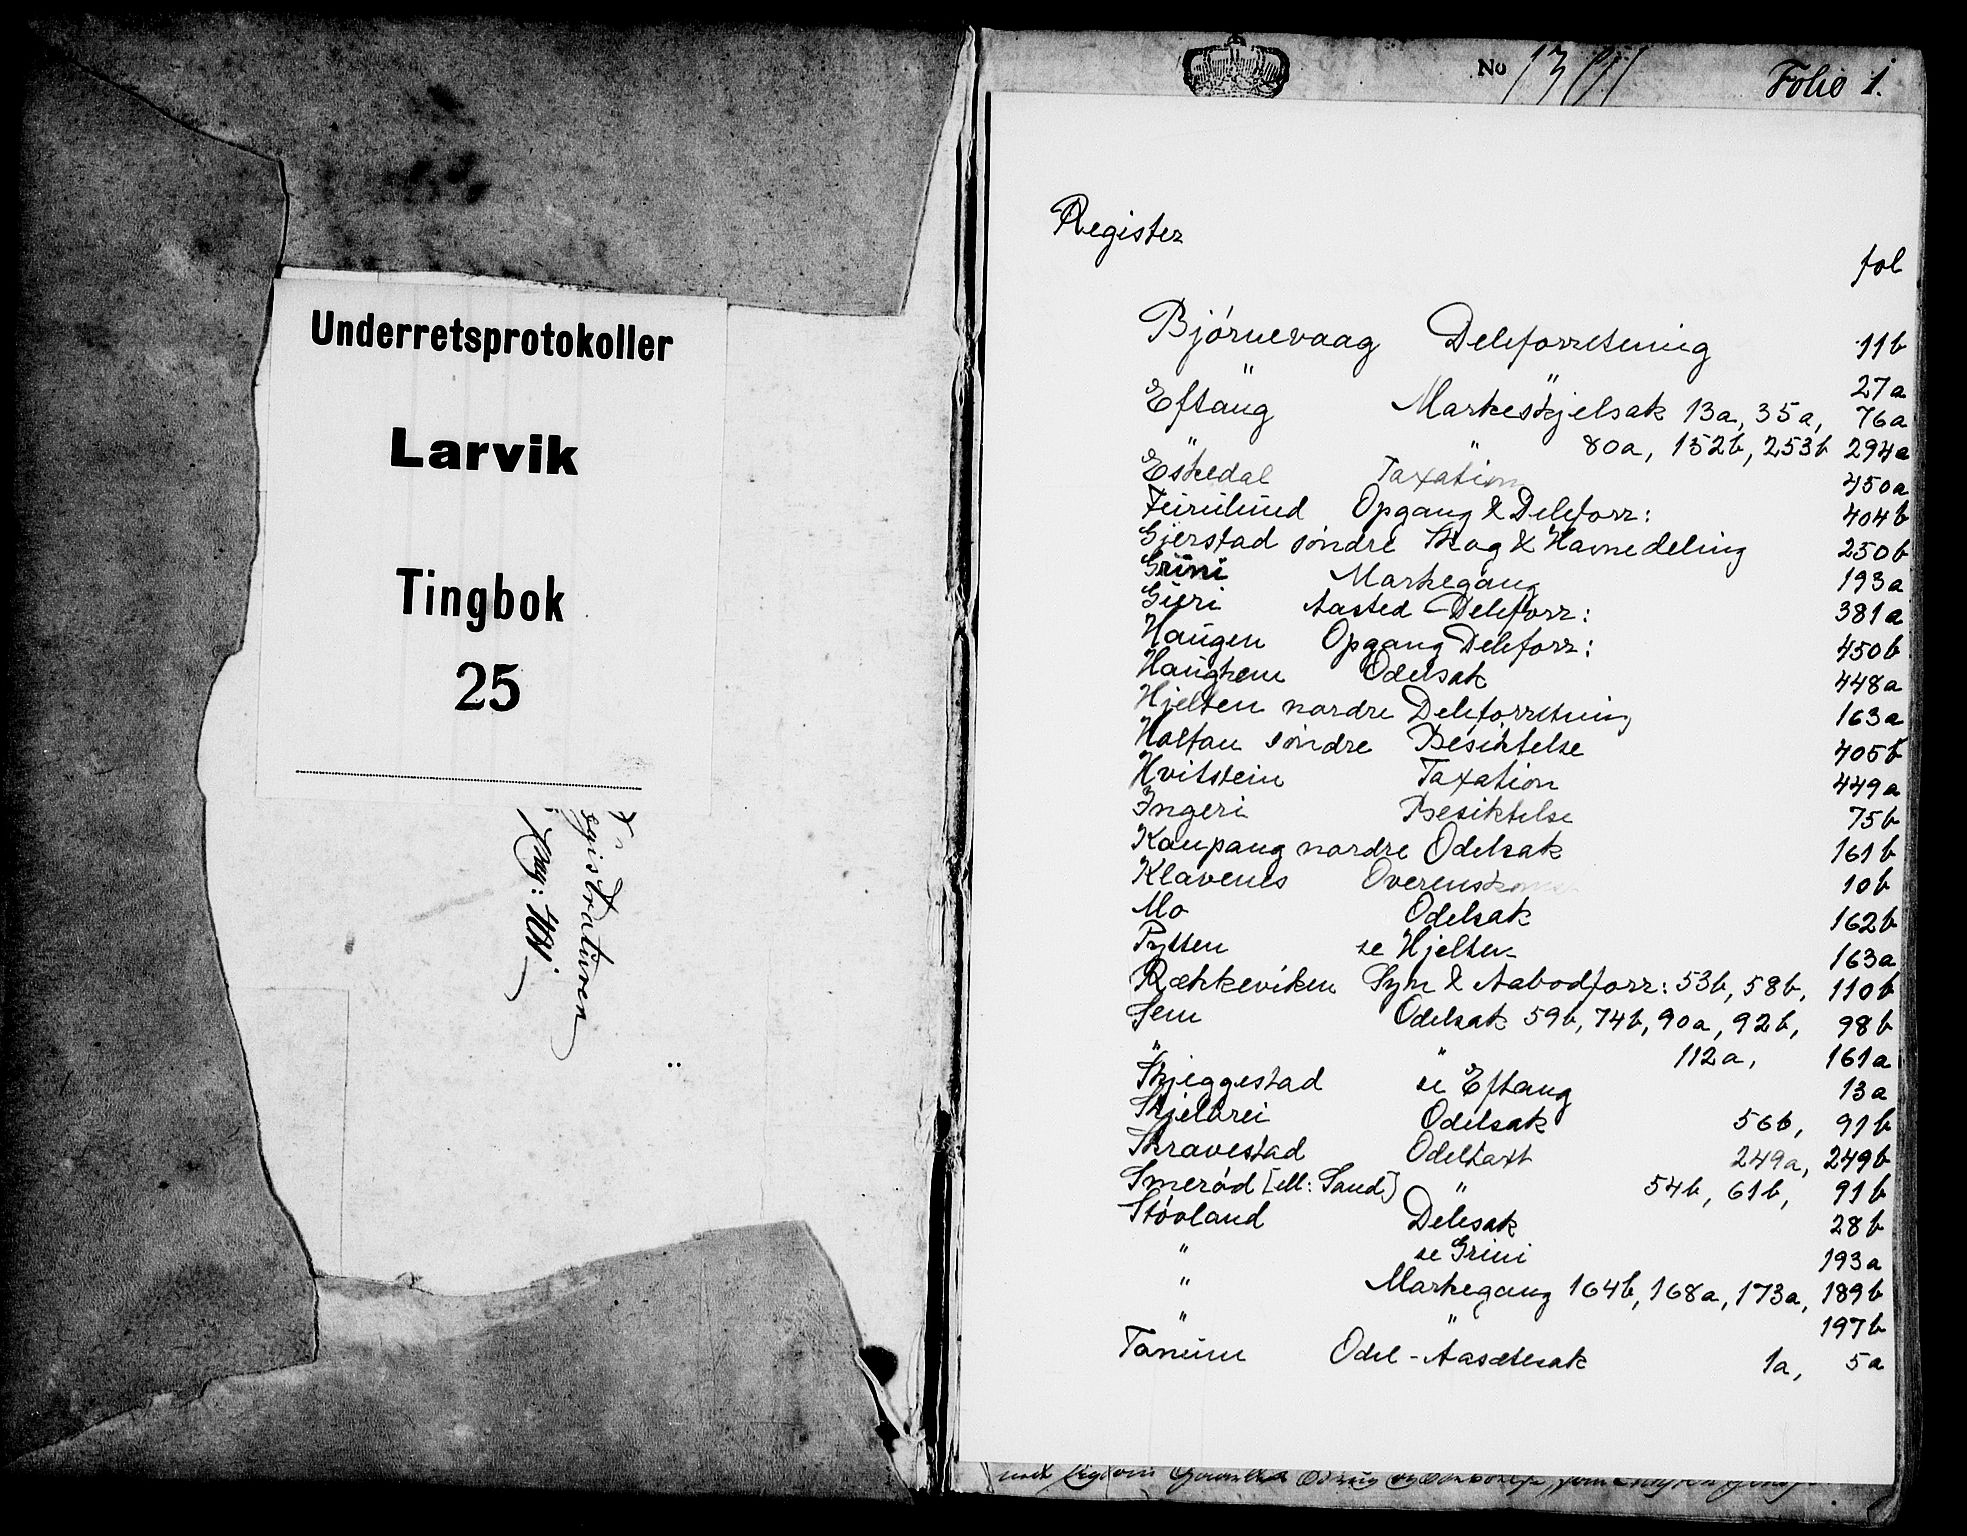 Underretsprotokoller
Larvik
Tingbok
25
Registraturen
No
Folio 1.
Register
fol
Bjørnevaag Deleforretning 11b
" " 27a
Eftang Markeskjelsak 13a, 35a, 76a
" " 80a, 152b, 253b 294a
Eskedal Taxation 450a
Furulund Opgang & Deleforr: 404b
Gjerstad søndre Skog & Havnedeling 250b
Grini Markegang 193a
Guri Aasted - Deleforr: 381a
Haugen Opgang Deleforr: 450b
Haughem Odelsak 448a
Hjelten nordre Deleforretning 163a
Holtan søndre Besiktelse 405b
Hvitstein Taxation 449a
Ingeri Besiktelse 75b
Kaupang nordre Odelsak 161b
Klavenes Overenskomst 10b
Mo Odelsak 162b
Pytten se Hjelten 163a
Rækkeviken Syn & Aabodforr: 53b, 58b, 110b
Sem Odelsak 59b, 74b, 90a, 92b, 98b
" " 112a, 161a
Skjeggestad se Eftang 13a
Skjelbrei Odelsak 56b, 91b
Skravestad Odeltaxt 249a, 249b
Smerød [ell: Sand] " 54b, 61b, 91b
Støvland Delesak 28b
" se Grini 193a
" Markegang 164b, 168a, 173a, 189b
" " 197b
Tanum Odel - Aasætesak 1a, 5a